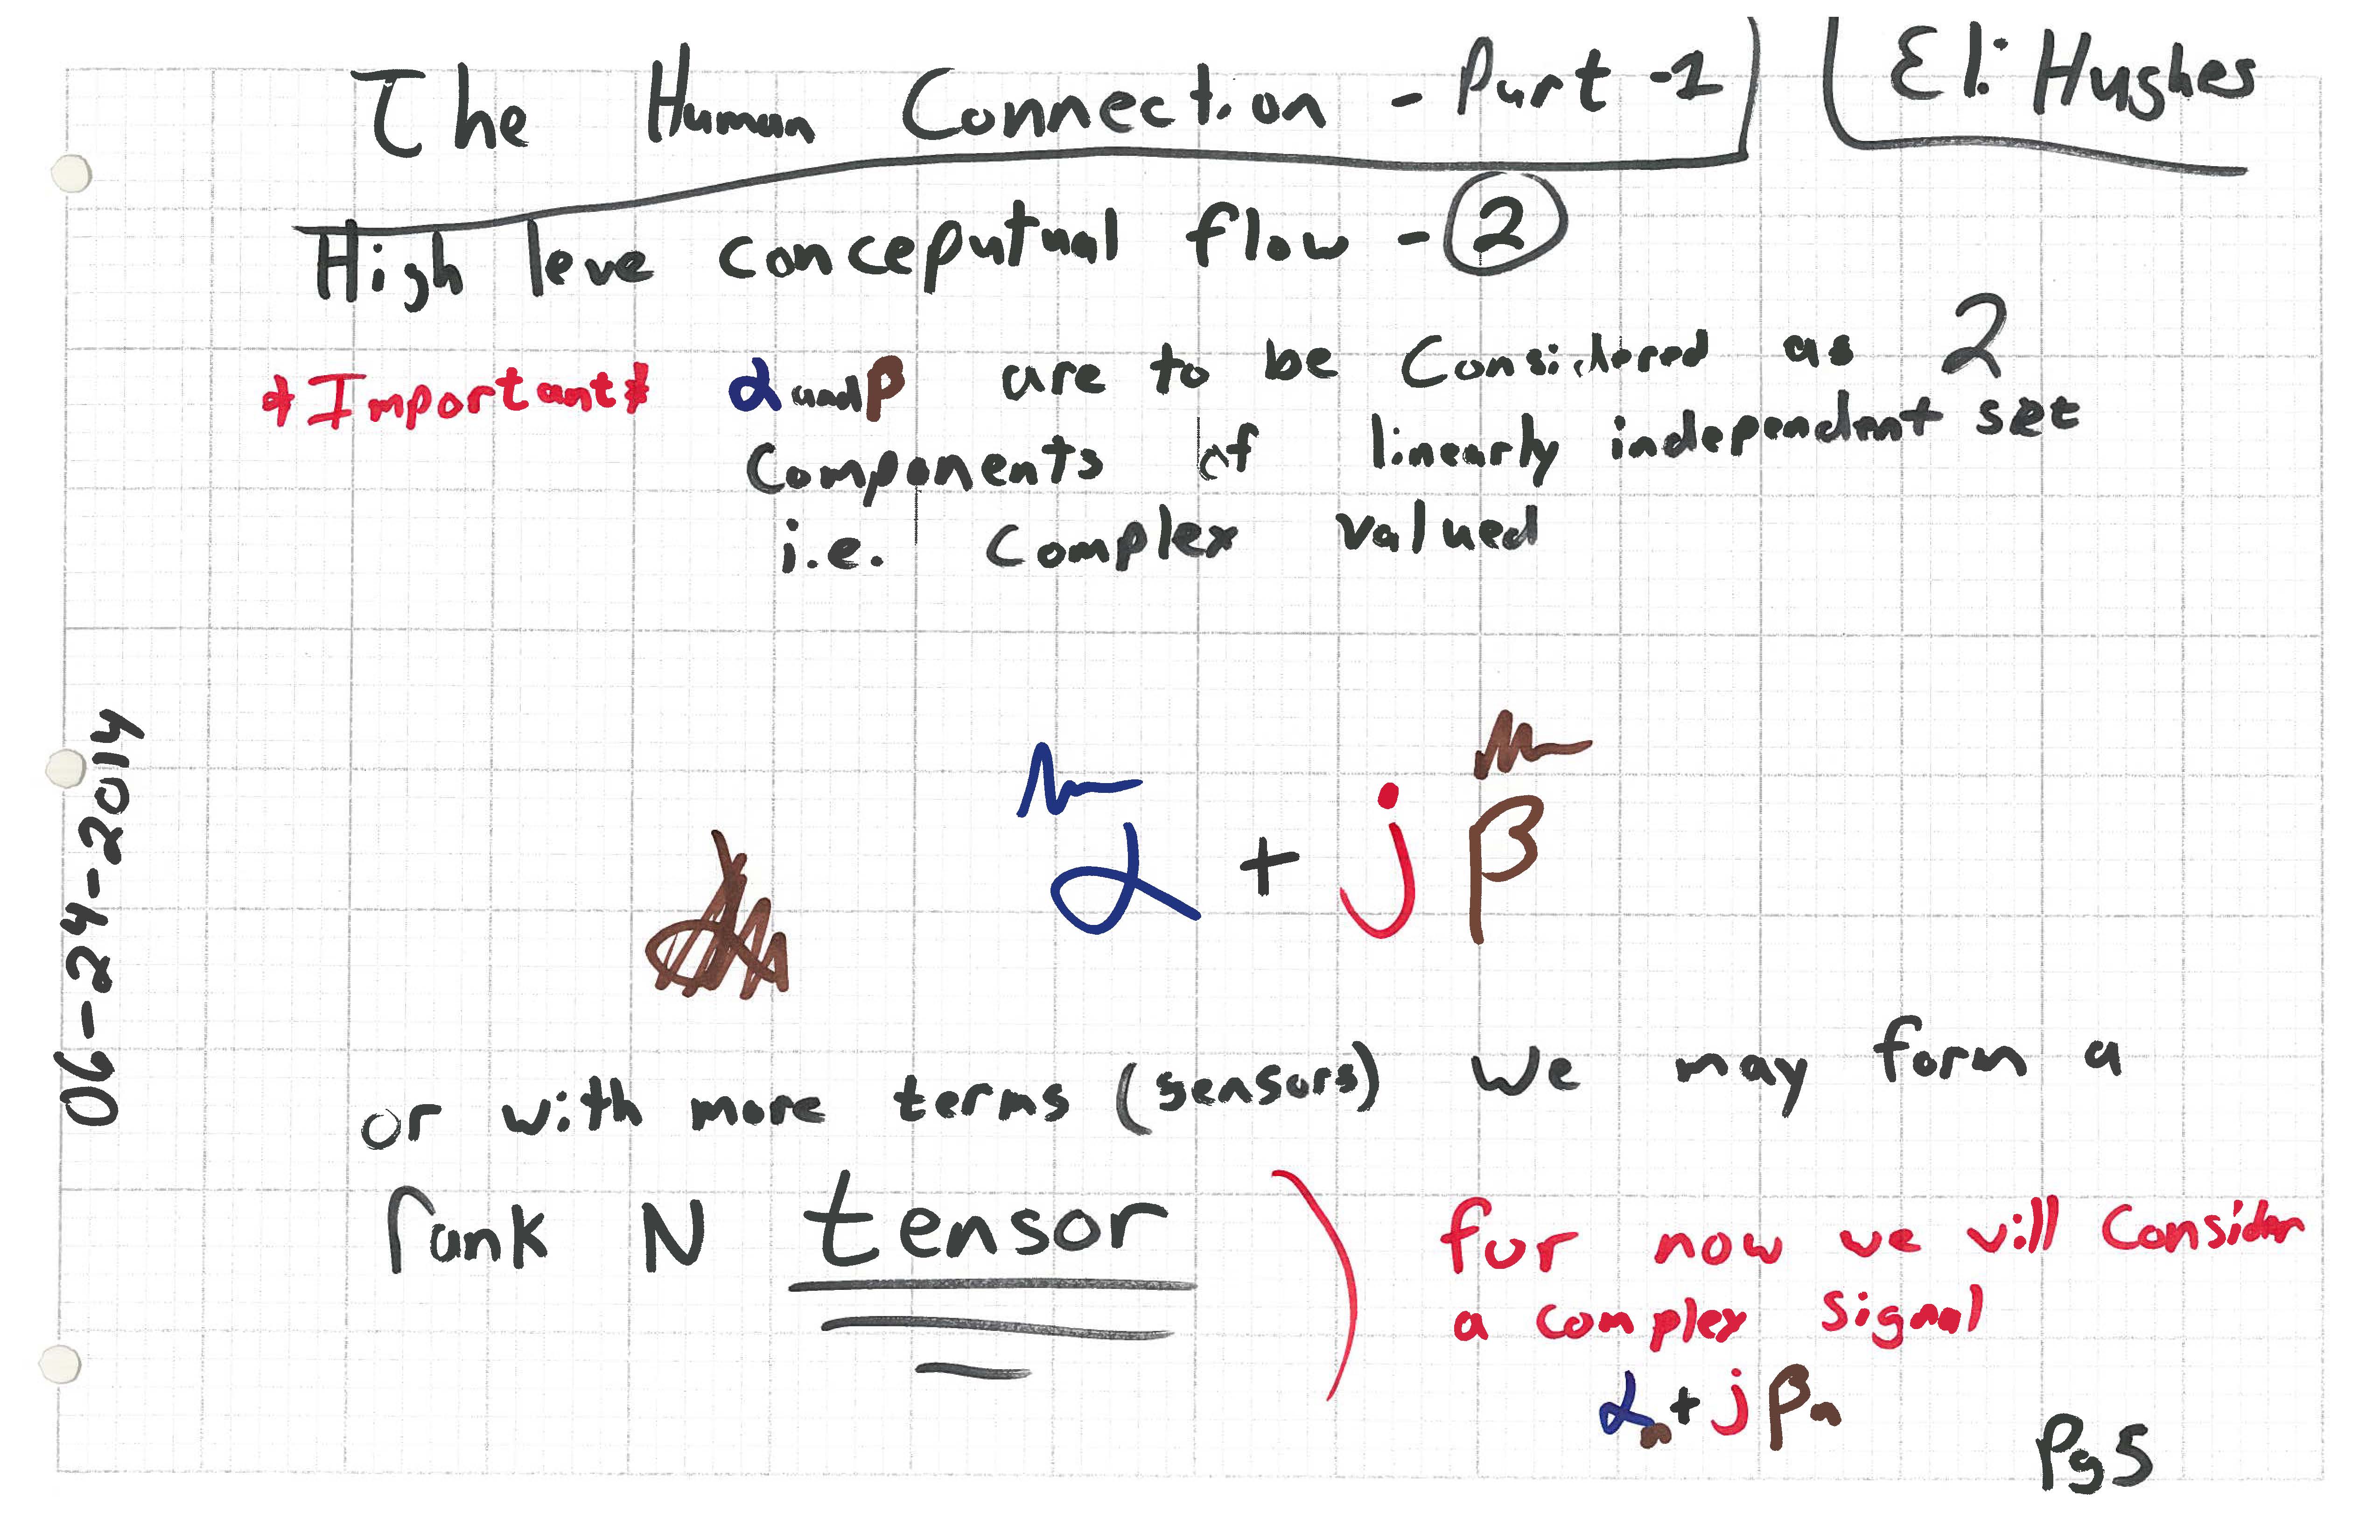 The Human Connection - Part -1
Eli Hughes
High leve conceputual flow - 2
*Important* α and β are to be Considered as 2
Components of linearly independent set
i.e. Complex valued
α + j β
or with more terms (sensors) we may form a
rank N tensor
for now we will Consider
a complex signal
αn + j βn
Pg 5
06-24-2014